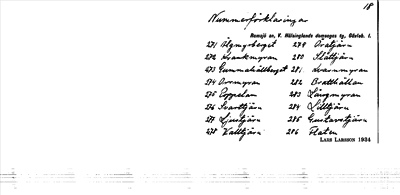 18
Nummerförklaringar
Ramsjö sn, V. Hälsinglands domsagas tg, Gävleb. l.
271 Älgmyrberget 279 Oxatjärn
272 Svankmyran 280 Slåttjärn
273 Gammelsätberget 281 Svarnmyran
274 Oremyran 282 Bratthällan
275 Oppelan 283 Långmyran
276 Svarttjärn 284 Lilltjärn
277 Ljustjärn 285 Gustavstjärn
278 Valltjärn 286 Flaten
LARS LARSSON 1934